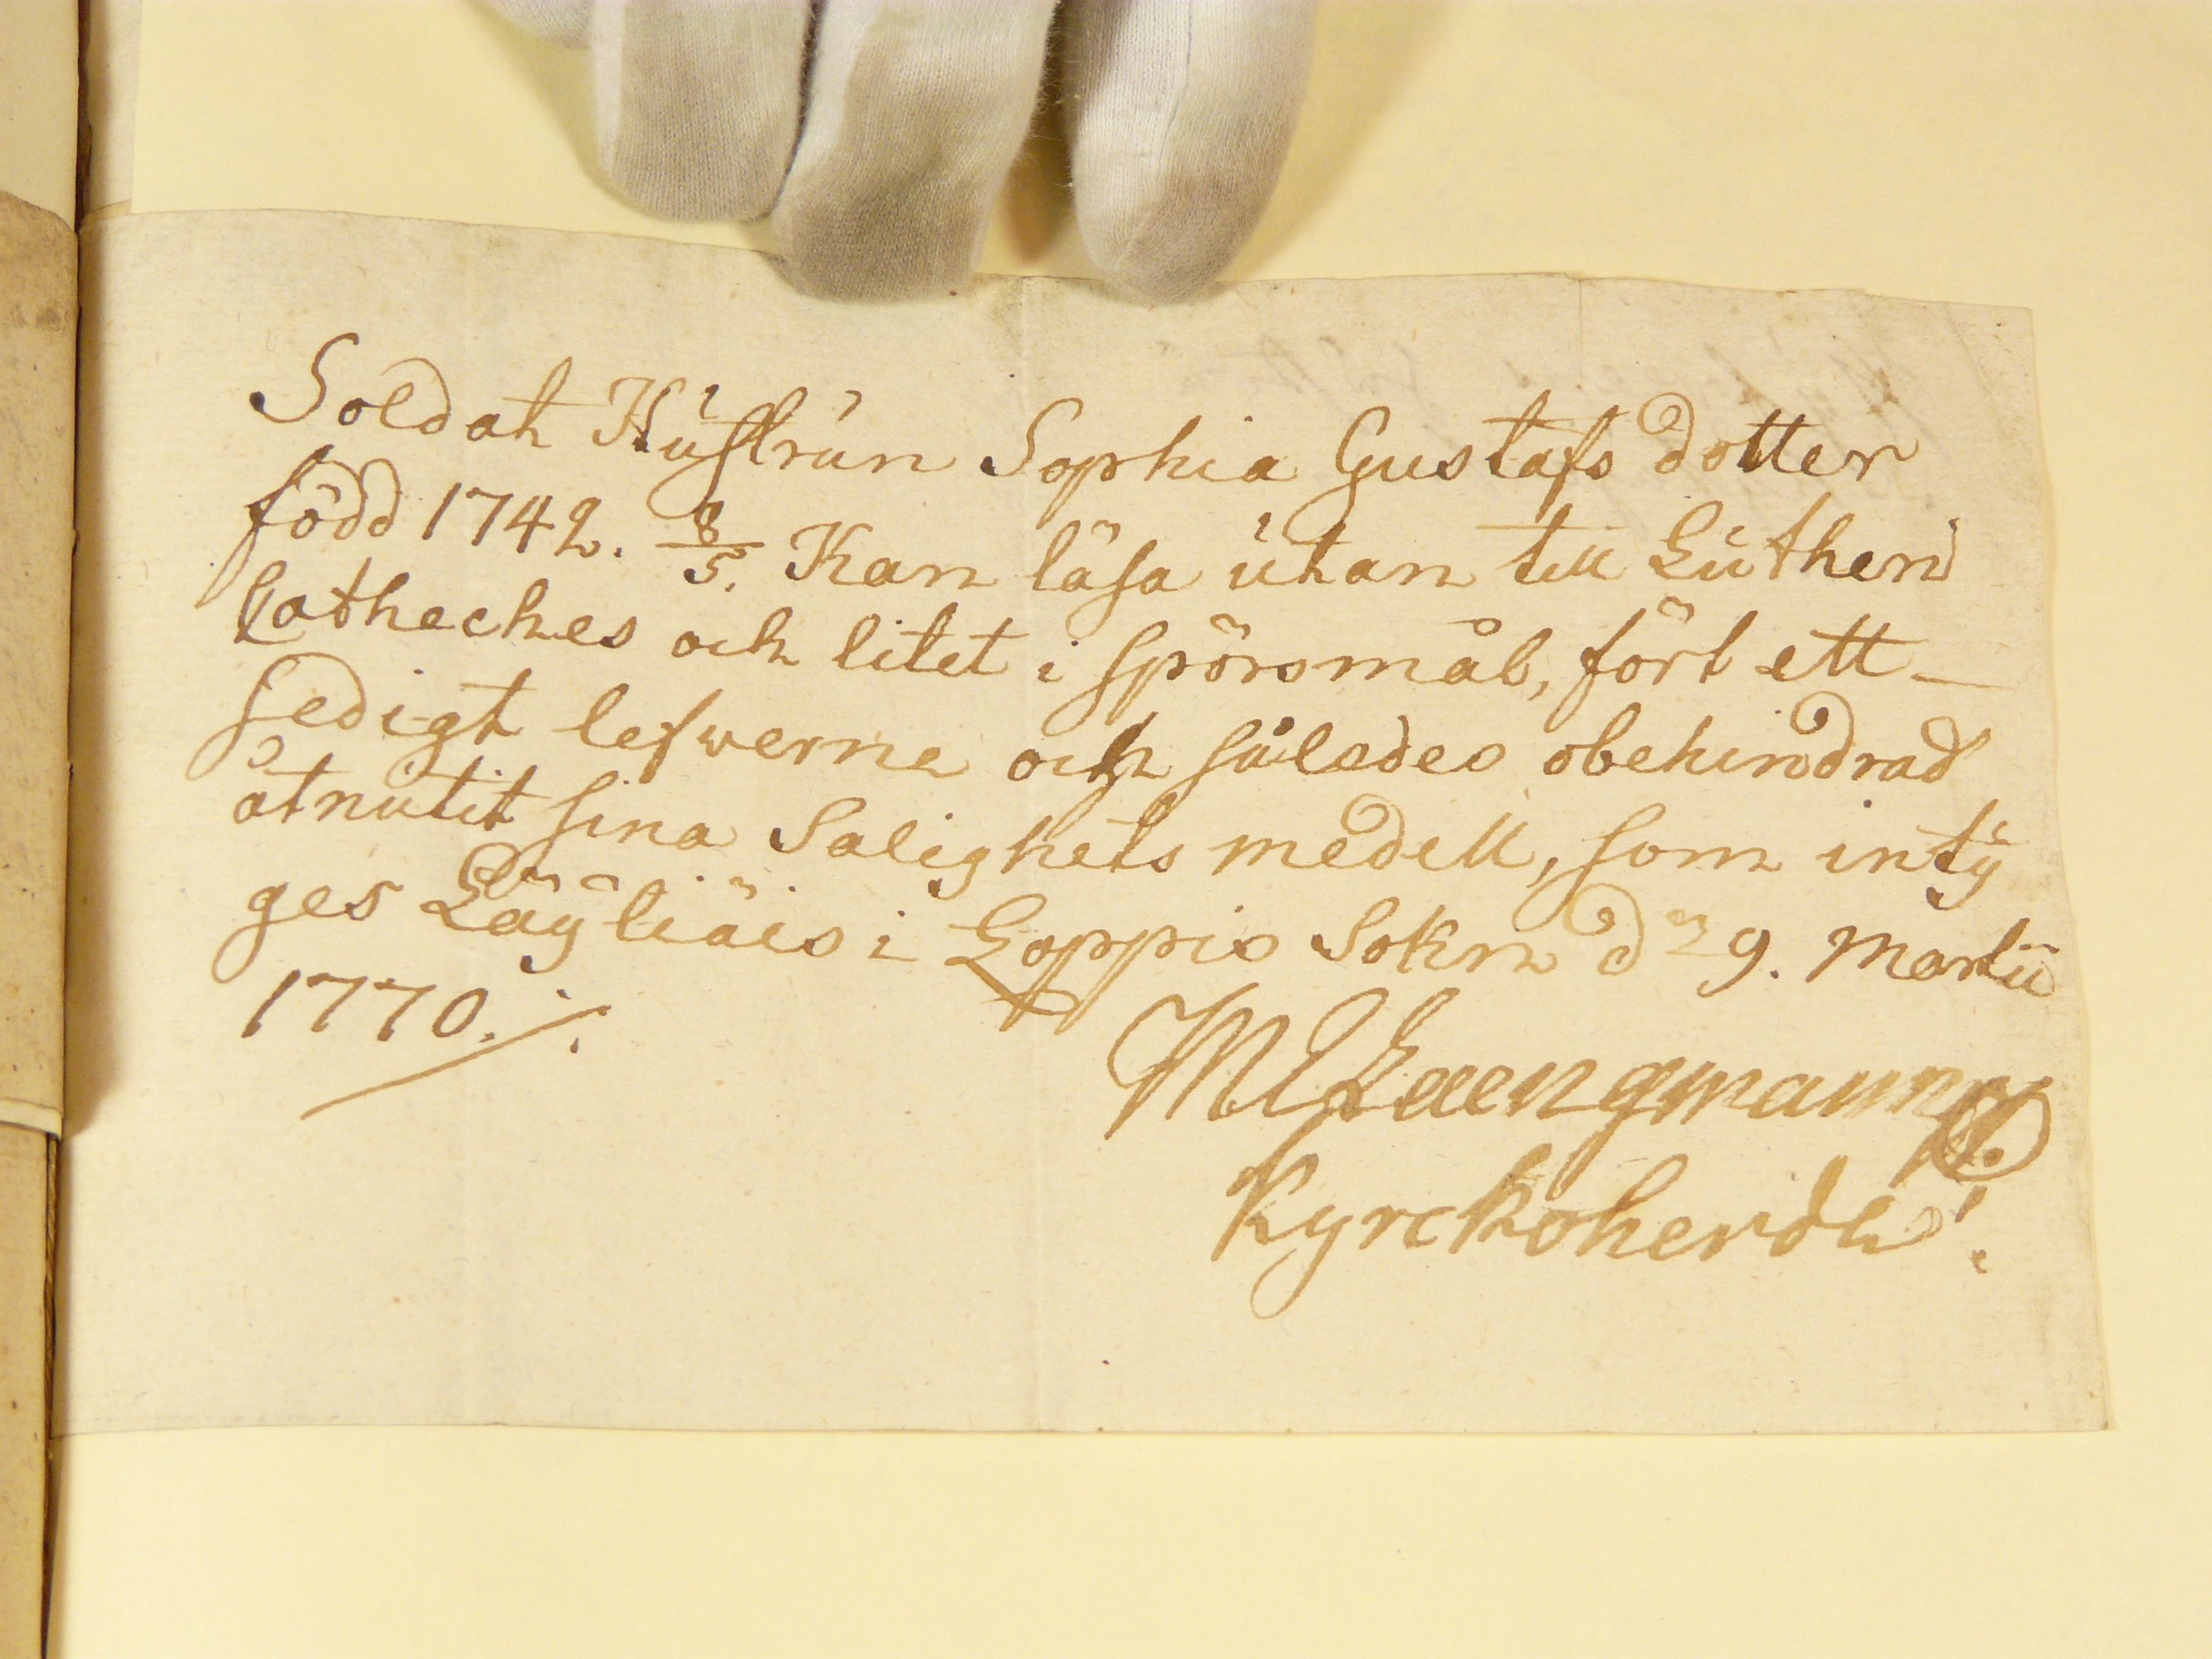 Soldat Hustrun Sophia Gustafs dotter
född 1742. 8/5. Kan läsa utan till Lutheri
Catheches och litet i spörsmål, fört ett -
sedigt lefverne och således obehindrad
åtnutit sina Salighets medell, som inty
ges Läyliäis i Loppis Sokn d 9. Martii
1770. ./.
Kyrckoherde.